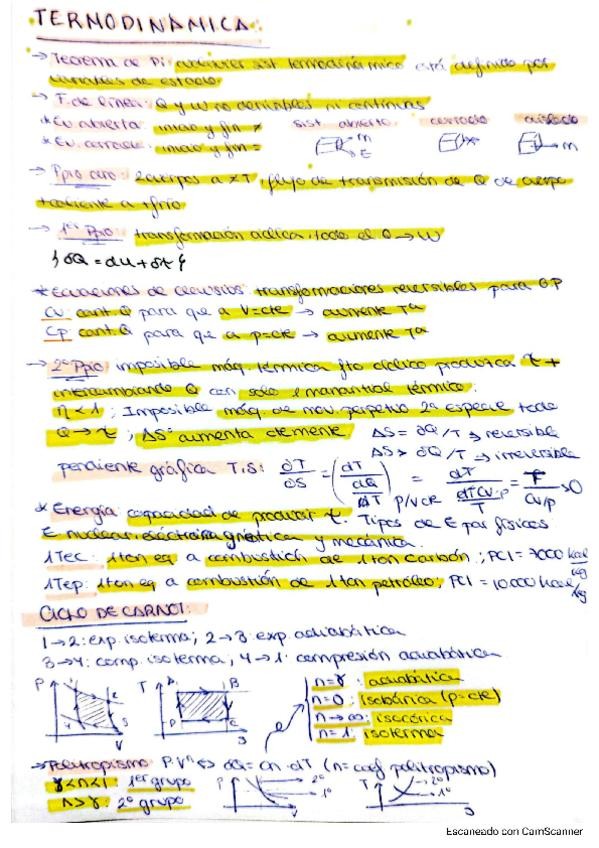 TERMODINÁMICA:
→ Teorema de Di: cualquier sist termodinámico está definido por
variables de estado
→ F. de línea: Q y W no derivables ni continuas
* Ev. abierta: inicio y fin ≠ sist. abierto cerrado aislado
* Ev. cerrada: inicio y fin = m E m
→ Ppio cero: 2 cuerpos a ≠ T, flujo de transmisión de Q de cuerpo
+ caliente a + frío
→ 1er Ppio: transformación cíclica, todo el Q → W
∮δQ = du + δτ
* Ecuaciones de transformaciones reversibles para GP
Cv: cant. Q para que a V=cte → aumente Tª
Cp: cant. Q para que a p=cte → aumente Tª
→ 2º Ppio: imposible máq. térmica fto cíclico produzca τ +
intercambiando Q con solo 1 manantial térmico.
η < 1; Imposible máq. de mov. perpetuo 2ª especie todo
Q → τ; ΔS aumenta ΔS = ∂Q/T → reversible
ΔS > ∂Q/T → irreversible
pendiente gráfica T,S: ∂T/∂S = (dT/(dQ/T)) P/V cte = dT/(dT Cv,p/T) = T/Cv/p > 0
* Energía: capacidad de producir τ. Tipos de E par físicos
E nuclear, y mecánica.
1 Tec: 1 ton eq a combustión de 1 ton carbón; PCI = 7000 kcal/kg
1 Tep: 1 ton eq a combustión de 1 ton petróleo; PCI = 10.000 kcal/kg
CICLO DE CARNOT:
1→2: exp. isoterma; 2→3 exp. adiabática
3→4: comp. isoterma; 4→1: compresión adiabática
P V T S
n=γ: adiabática
n=0: isobárica (p=cte)
n→∞: isocórica
n=1: isoterma
→ Politropismo: P·Vⁿ ⇔ dQ = Cn·dT (n = coef politropismo)
γ<n<1: 1er grupo P V 2º 1º
n>γ: 2º grupo T S 2º 1º
Escaneado con CamScanner